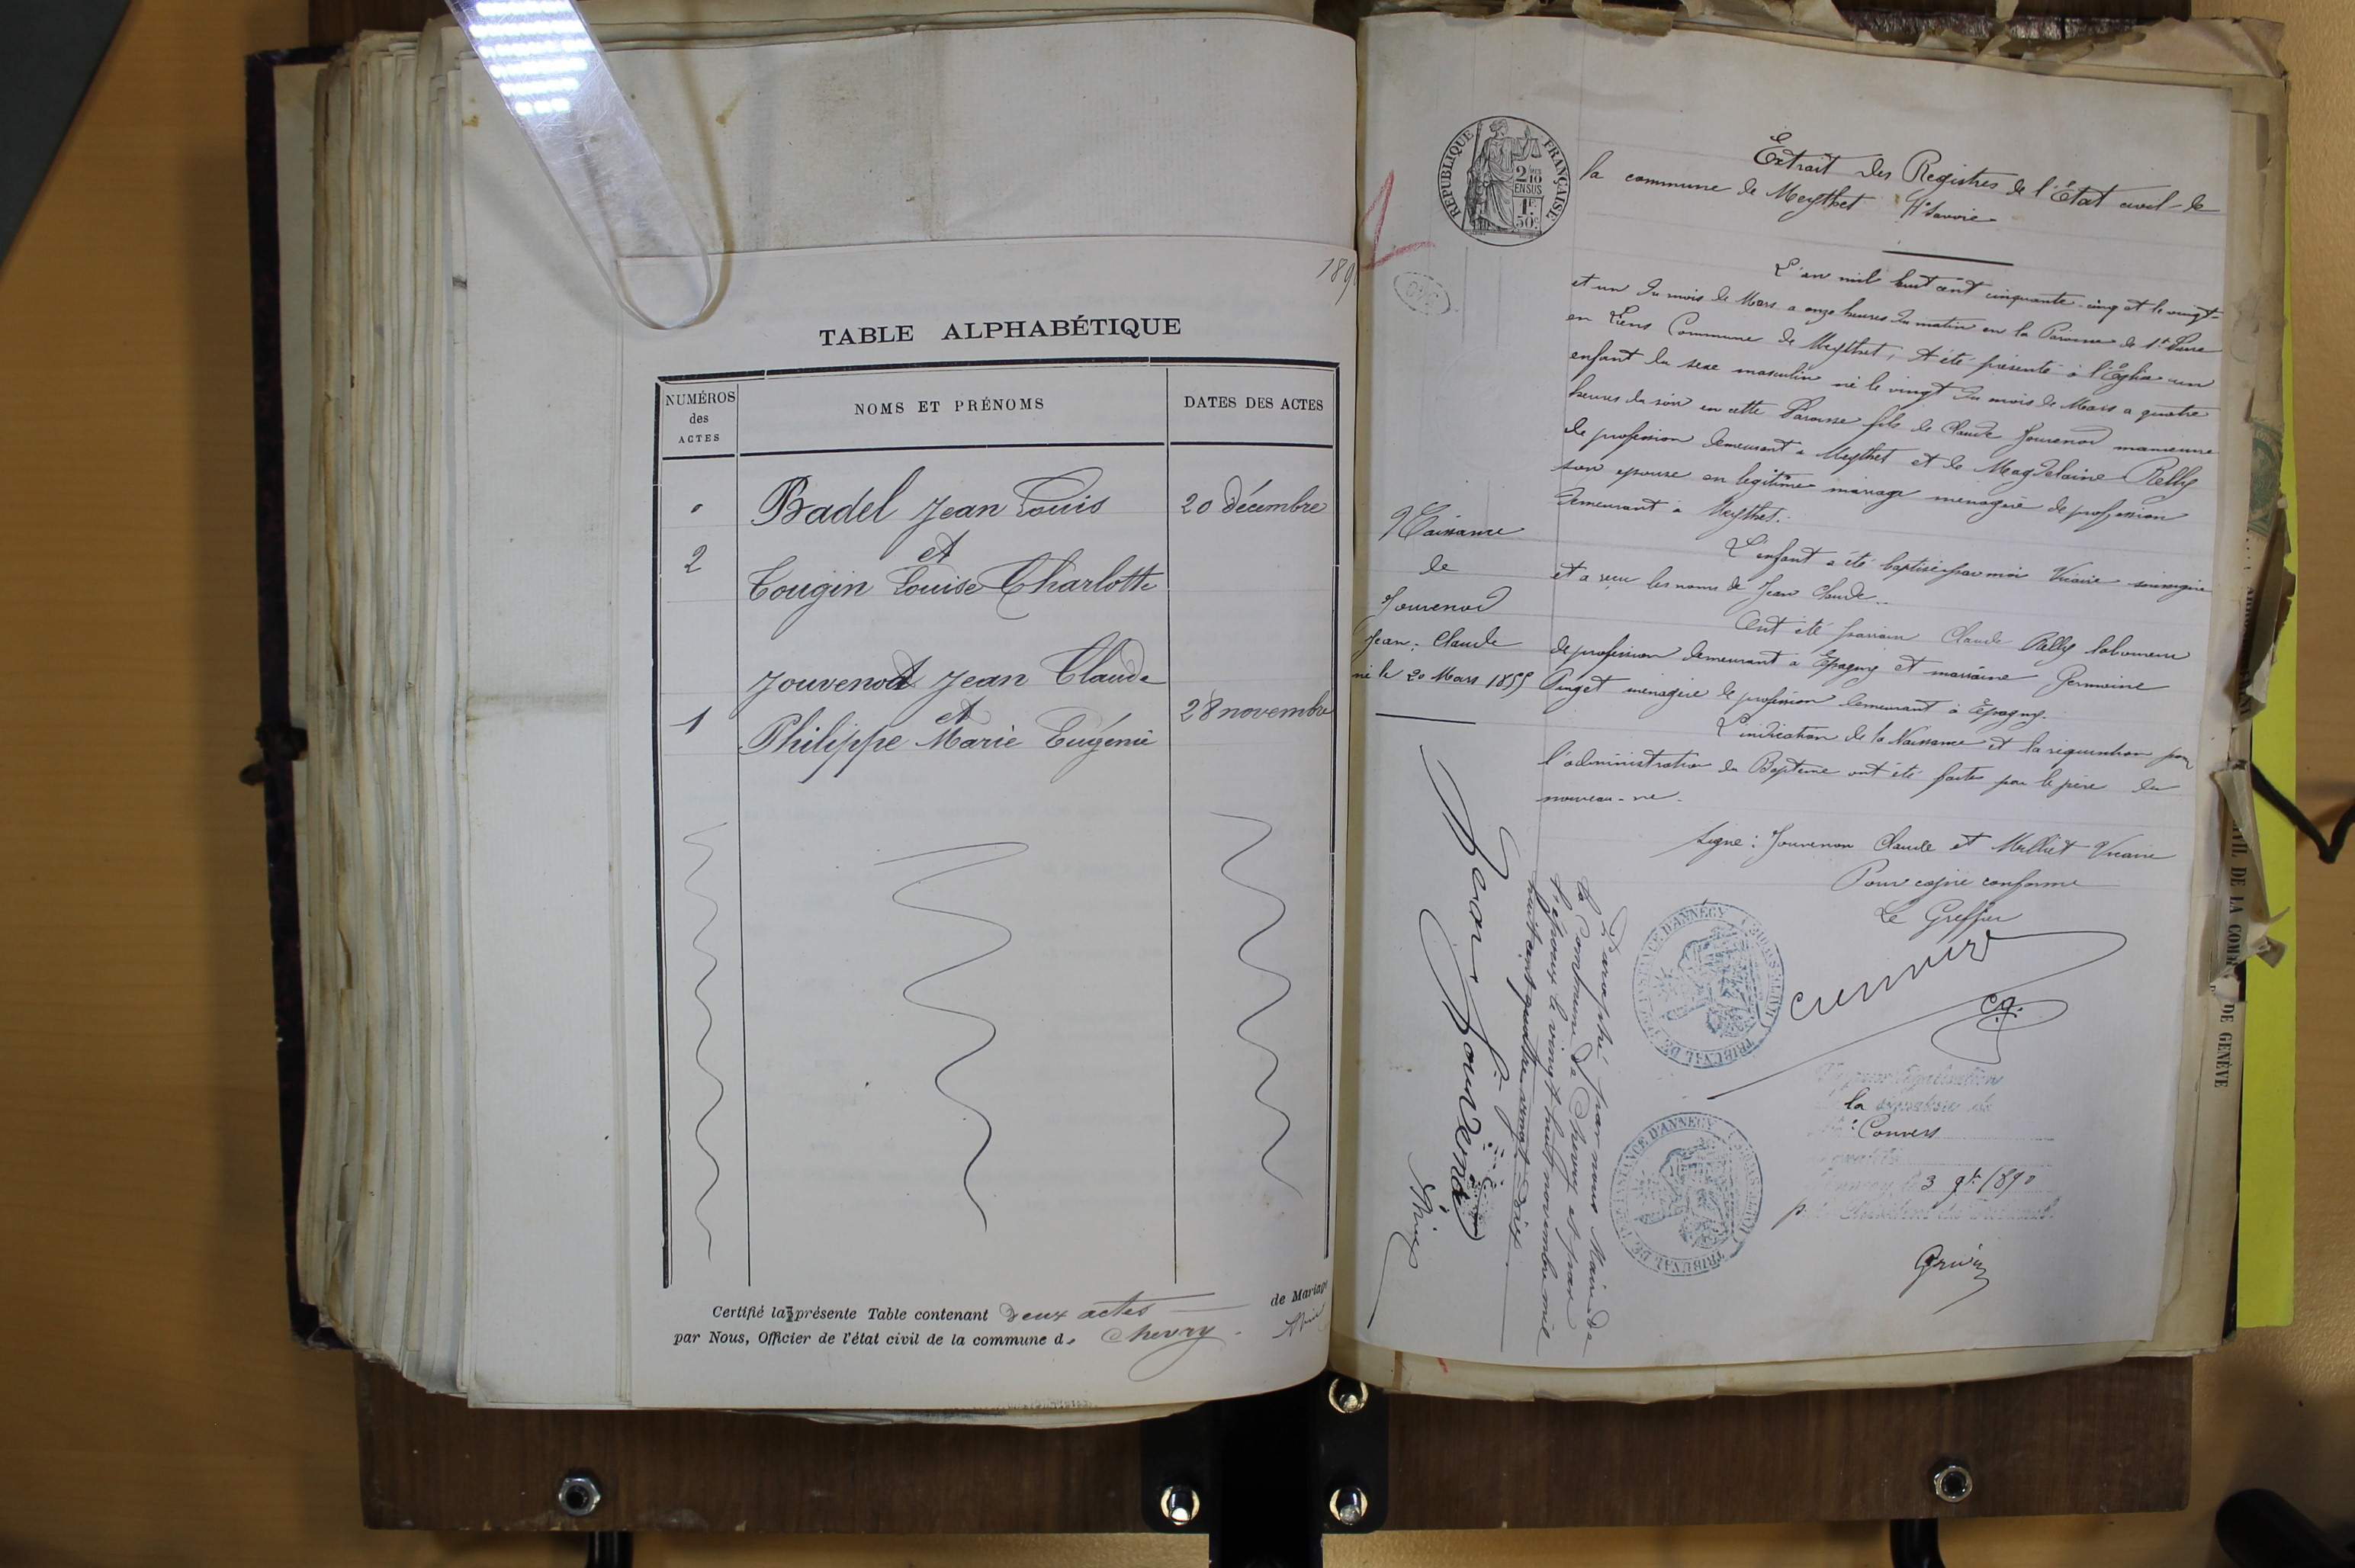 189
TABLE ALPHABÉTIQUE
NUMÉROS
des
ACTES
NOMS ET PRÉNOMS
DATES DES ACTES
Badel Jean Louis
20 décembre
2
et
Tougin Louise Charlotte
Jouvenod Jean Claude
1
et
28 novembre
Philippe Marie Eugénie
Certifié la présente Table contenant deux actes de Mariage
par Nous, Officier de l'état civil de la commune de Chevry.
RÉPUBLIQUE FRANÇAISE
2/10
EN SUS
1F
50c
Extrait des Registres de l'État civil de
la commune de Meythet Hte Savoie
L'an mil huit cent cinquante-cinq et le vingt-
et un du mois de Mars a onze heures du matin en la Paroisse de St
en Commune de Meythet, A été présenté à l'Eglise un
enfant du sexe masculin né le vingt du mois de Mars a quatre
heures du soir en cette Paroisse fils de Claude Jouvenod manoeuvre
de profession demeurant a Meythet et de Magdelaine Relly
son epouse en légitime mariage ménagère de profession
demeurant à Meythet.
L'enfant a été baptisé par moi Vicaire soussigné
et a reçu les noms de Jean Claude.
Ont été parrain Claude laboureur
de profession demeurant a Epagny et marraine Germaine
Puget ménagère de profession demeurant à Epagny.
L'indication de la Naissance et la réquisition pour
l'administration du Baptême ont été faites par le père du
nouveau-né.
Signé : Jouvenon Claude et Vicaire
Pour copie conforme
Le Greffier
Naissance
de
Jouvenod
Jean-Claude
né le 20 Mars 1855
Jean Jouvenod
Paraphé par nous Maire de
la Commune de Chevry et par
l'époux le vingt huit novembre mil
huit cent quatre vingt dix.
TRIBUNAL DE 1ERE INSTANCE D'ANNECY
la signature de
Convers
3 9bre 1890
TRIBUNAL DE 1ERE INSTANCE D'ANNECY
DE GENÈVE